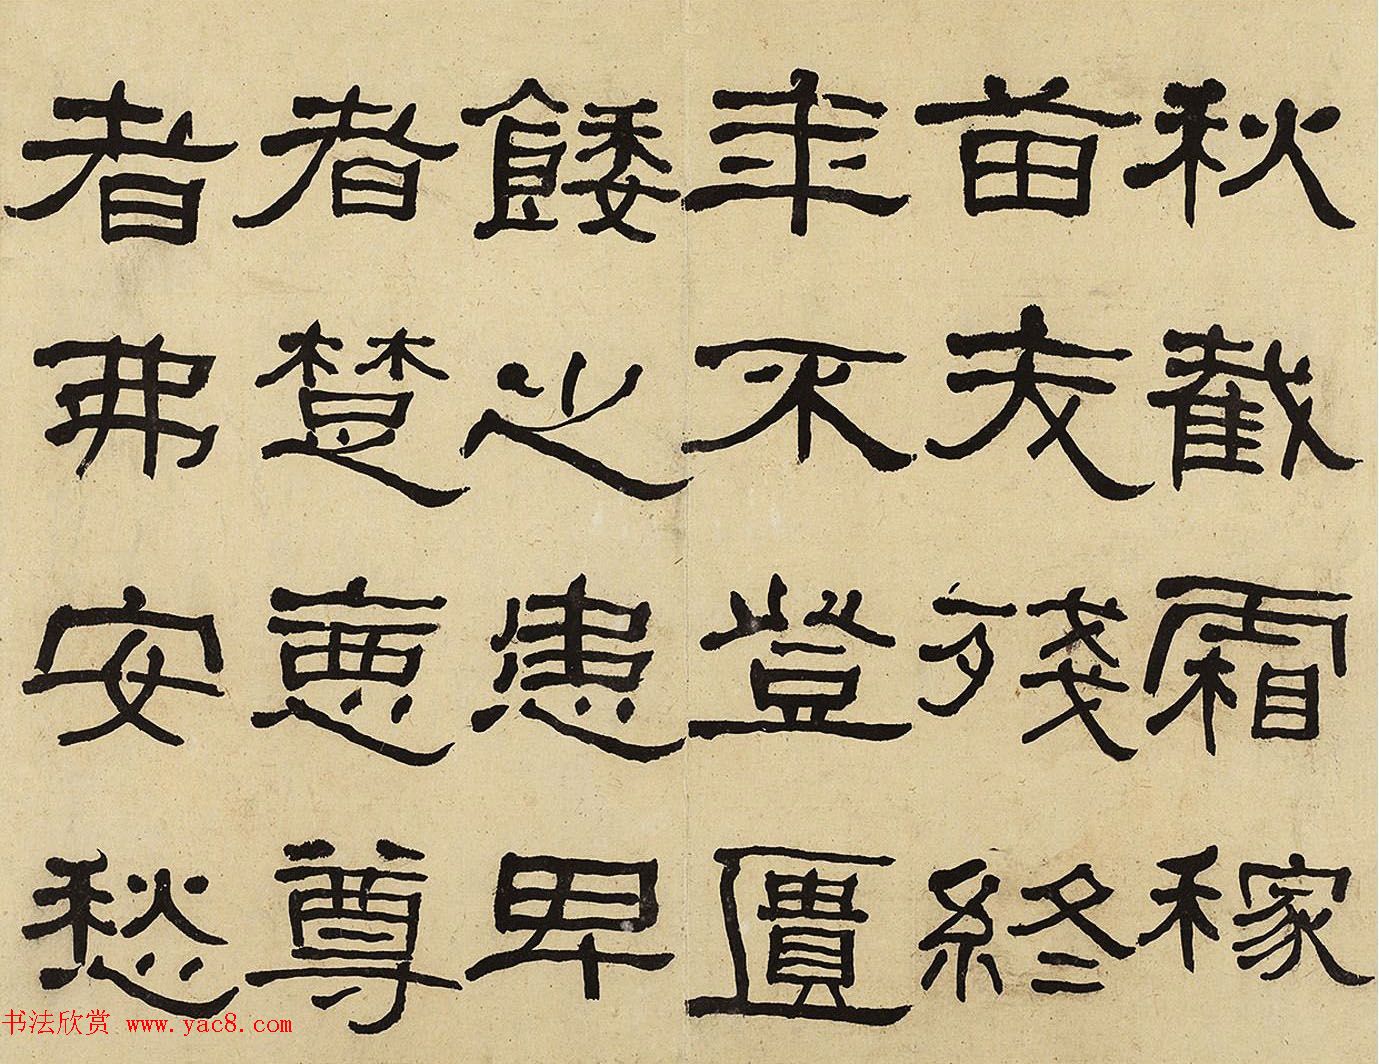 秋截霜稼
苗殘終
年不登匱
餒之患卑
者楚尊
者弗安愁
书法欣赏 www.yac8.com